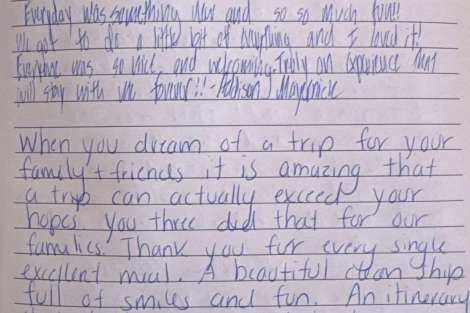 Everyday was something new and so so much fun!!
We got to do a little bit of everything and I loved it!
Everyone was so nice and welcoming. Truly an experience that
will stay with me forever!! - Maverick
When you dream of a trip for your
family + friends it is amazing that
a trip can actually exceed your
hopes you three did that for our
families. Thank you for every single
excellent meal. A beautiful clean ship
full of smiles and fun. An itinerary